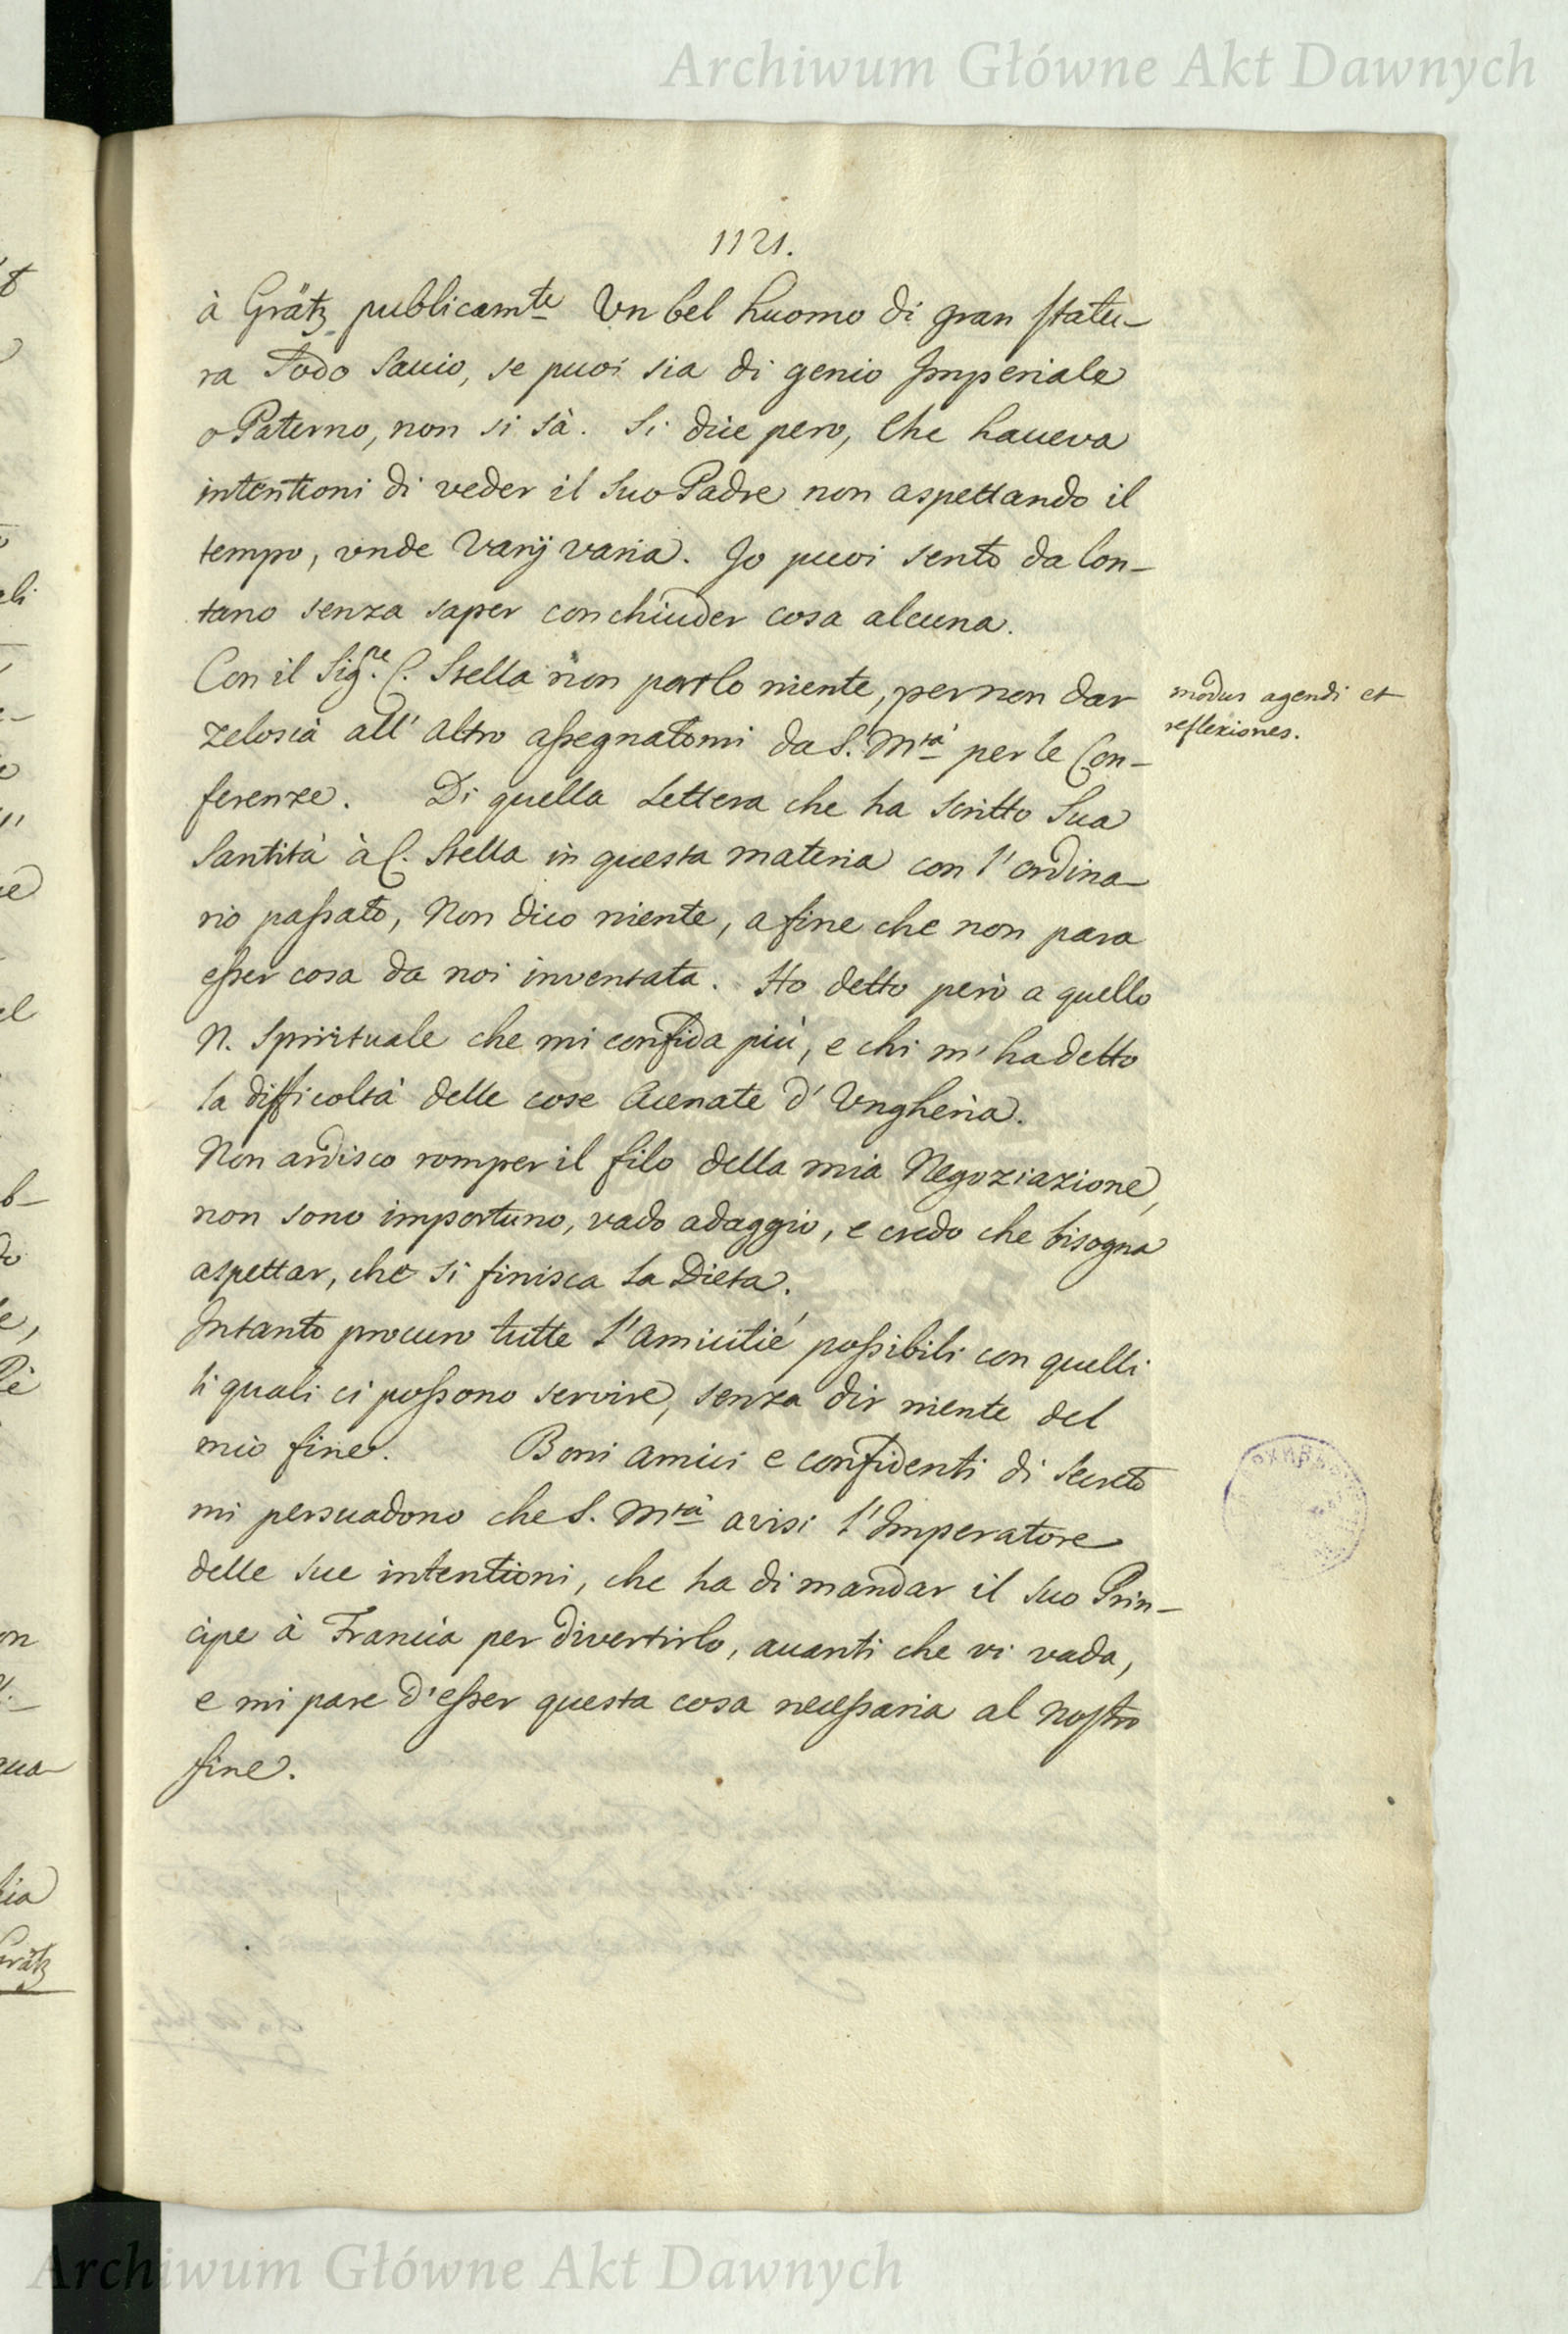 Archiwum Główne Akt Dawnych
1121.
à Grätz publicamte Vn bel huomo di gran statu-
ra Sodo Sauio, se puoi sia di genio Imperiale
o Paterno, non si sà. Si dice pero, Che haueva
intentioni di veder il Suo Padre non aspettando il
tempo, vnde Varij varia. Jo puoi sento da lon-
tano senza saper conchiuder cosa alcuna.
Con il Sigre. C. Stella non parlo niente, per non dar
zelosia all' altro assegnatomi da S. Mtà per le Con-
ferenze. Di quella Lettera che ha scritto Sua
Santità à C. Stella in questa materia con l'ordina-
rio passato, Non dico niente, a fine che non para
esser cosa da noi inventata. Ho detto però a quello
N. Spirituale che mi confida più, e chi m'ha detto
la difficoltà delle cose Acenate d'Vngheria.
Non ardisco romper il filo della mia Negoziazione,
non sono importuno, vado adaggio, e credo che bisogna
aspettar, che si finisca la Dieta.
Intanto procuro tutte l'Amicitie possibili con quelli
li quali ci possono servire, senza dir niente del
mio fine. Boni amici e confidenti di secreto
mi persuadono che S. Mtà avisi l'Imperatore
delle sue intentioni, che ha di mandar il suo Prin-
cipe à Francia per divertirlo, auanti che vi vada,
e mi pare d'esser questa cosa necessaria al nostro
fine.
modus agendi et
reflexiones.
Archiwum Główne Akt Dawnych